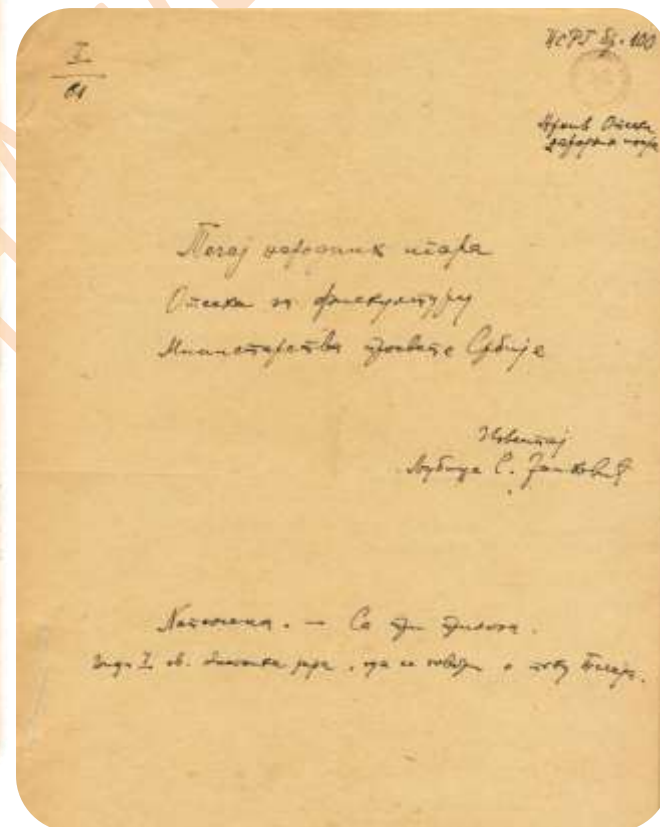 I
61
НСРЈ Бр. 100
Архив Отсека
народних игара
Течај народних игара
Отсека за фискултуру
Министарства просвете Србије
Извештај
Љубица С. Јанковић
Напомена. — Са три прилога.
види I св. , где се говори о току течаја.